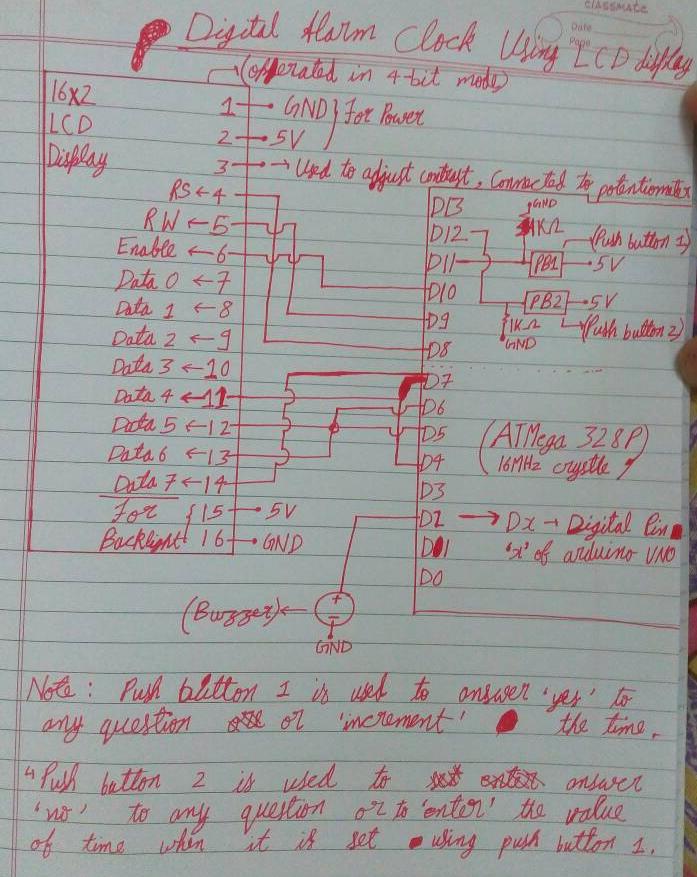 CLASSMATE
Date
Page
Digital Alarm Clock Using LCD display
(operated in 4-bit mode)
16x2
LCD
Display
1 → GND } For Power
2 → 5V
3 → → Used to adjust contrast, Connected to potentiometer
RS ← 4
RW ← 5
Enable ← 6
Data 0 ← 7
Data 1 ← 8
Data 2 ← 9
Data 3 ← 10
Data 4 ← 11
Data 5 ← 12
Data 6 ← 13
Data 7 ← 14
For { 15 5V
Backlight 16 GND
D13
D12
D11
D10
D9
D8
D7
D6
D5
D4
D3
D2 → Dx → Digital Pin
D1 'x' of arduino UNO
D0
GND
1KΩ
(Push button 1)
PB1 5V
PB2 5V
1KΩ (Push button 2)
GND
(ATMega 328P)
16MHz crystle
(Buzzer) ← +
GND
Note : Push button 1 is used to answer 'yes' to
any question or 'increment' the time.
" Push button 2 is used to answer
'no' to any question or to 'enter' the value
of time when it is set using push button 1.